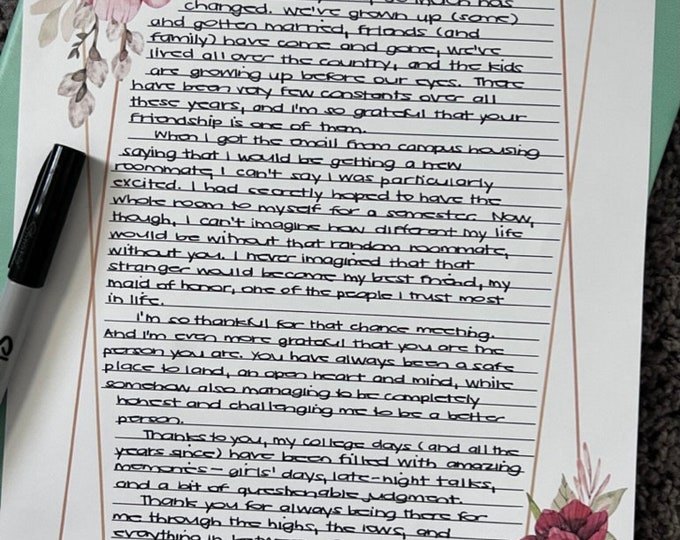 so much has
changed. we've grown up (some)
and gotten married, friends (and
family) have come and gone, we've
lived all over the country, and the kids
are growing up before our eyes. There
have been very few constants over all
these years, and I'm so grateful that your
friendship is one of them.
When I got the email from campus housing
saying that I would be getting a new
roommate, I can't say I was particularly
excited. I had secretly hoped to have the
whole room to myself for a semester. Now,
though, I can't imagine how different my life
would be without that random roommate,
without you. I never imagined that that
stranger would become my best friend, my
maid of honor, one of the people I trust most
in life.
I'm so thankful for that chance meeting.
And I'm even more grateful that you are the
person you are. You have always been a safe
place to land, an open heart and mind, while
somehow also managing to be completely
honest and challenging me to be a better
person.
Thanks to you, my college days (and all the
years since) have been filled with amazing
memories - girls' days, late-night talks,
and a bit of questionable judgment.
Thank you for always being there for
me through the highs, the lows, and
everything in